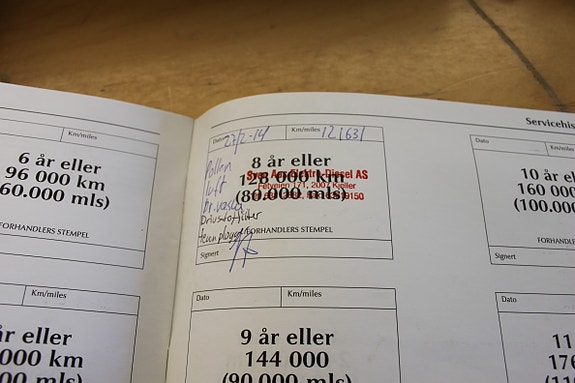 Servicehis
Km/miles
6 år eller
96 000 km
60.000 mls)
FORHANDLERS STEMPEL
Dato 27/2-14 Km/miles 121631
Pollen
luft
8 år eller
128 000 km
(80.000 mls)
Sven Aas Elektro-Diesel AS
Fetveien 171, 2007 Kjeller
Drivstoffilter
FORHANDLERS STEMPEL
Signert
10 år e
160 000
(100.000
FORHANDLERS
Signert
Km/miles
år eller
000 km
000 mls)
Dato Km/miles
9 år eller
144 000
(90.000 mls)
Dato
11
176